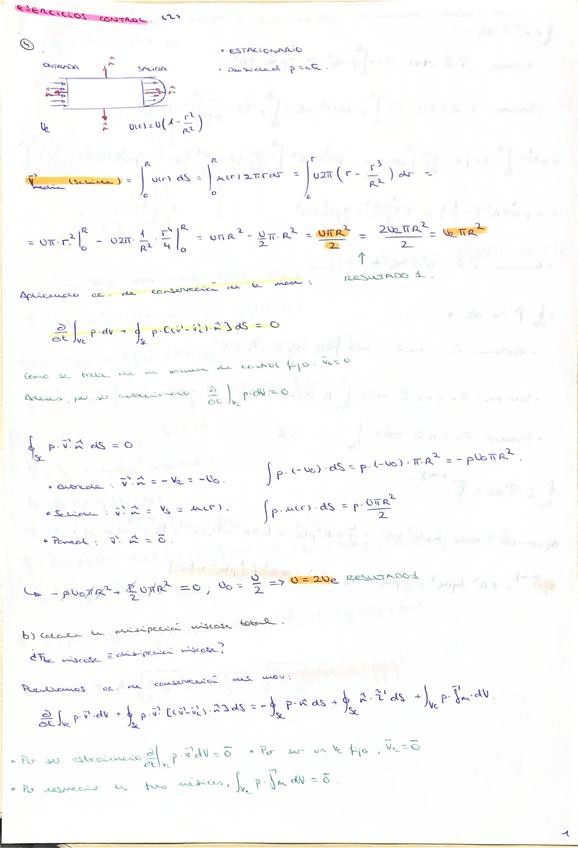 EJERCICIOS CONTROL (2)
4
• ESTACIONARIO
ENTRADA SALIDA
• densidad ρ = cte.
n̂
Ve
U(r) = U(1 - r²/R²)
V̄ media (salida) = ∫₀ᴿ U(r) dS = ∫₀ᴿ u(r) 2πr dr = ∫₀ʳ U2π (r - r³/R²) dr =
= Uπ · r²|₀ᴿ - U2π · 1/R² · r⁴/4|₀ᴿ = UπR² - U/2 π · R² = UπR²/2 = 2UeπR²/2 = UeπR²
↑
RESULTADO 1.
Aplicando ec. de conservación de la masa:
∂/∂t ∫Vc ρ·dV + ∮Sc ρ·[(v̄ - v̄c)·n̂] dS = 0
Como se trata de un volumen de control fijo, v̄c = 0
Además, por ser estacionario: ∂/∂t ∫Vc ρ·dV = 0.
∮Sc ρ · v̄ · n̂ dS = 0
• entrada: v̄ · n̂ = -Ve = -U₀. ∫ρ·(-U₀)·dS = ρ·(-U₀)·π·R² = -ρU₀πR².
• Salida: v̄ · n̂ = Vs = u(r). ∫ρ·u(r)·dS = ρ· UπR²/2
• Pared: v̄ · n̂ = 0̄.
↳ -ρU₀πR² + ρ/2 UπR² = 0, U₀ = U/2 => U = 2Ue RESULTADO 1
b) Calcule la disipación viscosa total.
¿Fza viscosa = disipación viscosa?
Planteamos ec. de conservación cant. mov:
∂/∂t ∫Vc ρ·v̄·dV + ∮Sc ρ·v̄·[(v̄ - v̄c)·n̂] dS = -∮Sc ρ·n̂ dS + ∮Sc n̂·τ̄' dS + ∫Vc ρ·f̄m·dV.
• Por ser estacionario ∂/∂t ∫Vc ρ·v̄ dV = 0̄ • Por ser un Vc fijo, v̄c = 0̄
• Por fuerzas másicas, ∫Vc ρ·f̄m dV = 0̄.
1